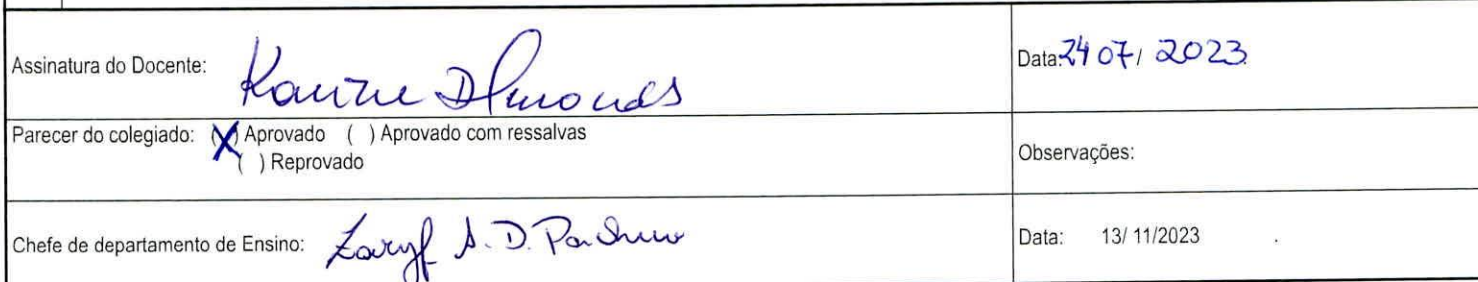 Assinatura do Docente: Karine D
Data: 24 07/ 2023
Parecer do colegiado: (X) Aprovado ( ) Aprovado com ressalvas
( ) Reprovado
Observações:
Chefe de departamento de Ensino: A. D.
Data: 13/ 11/2023 .